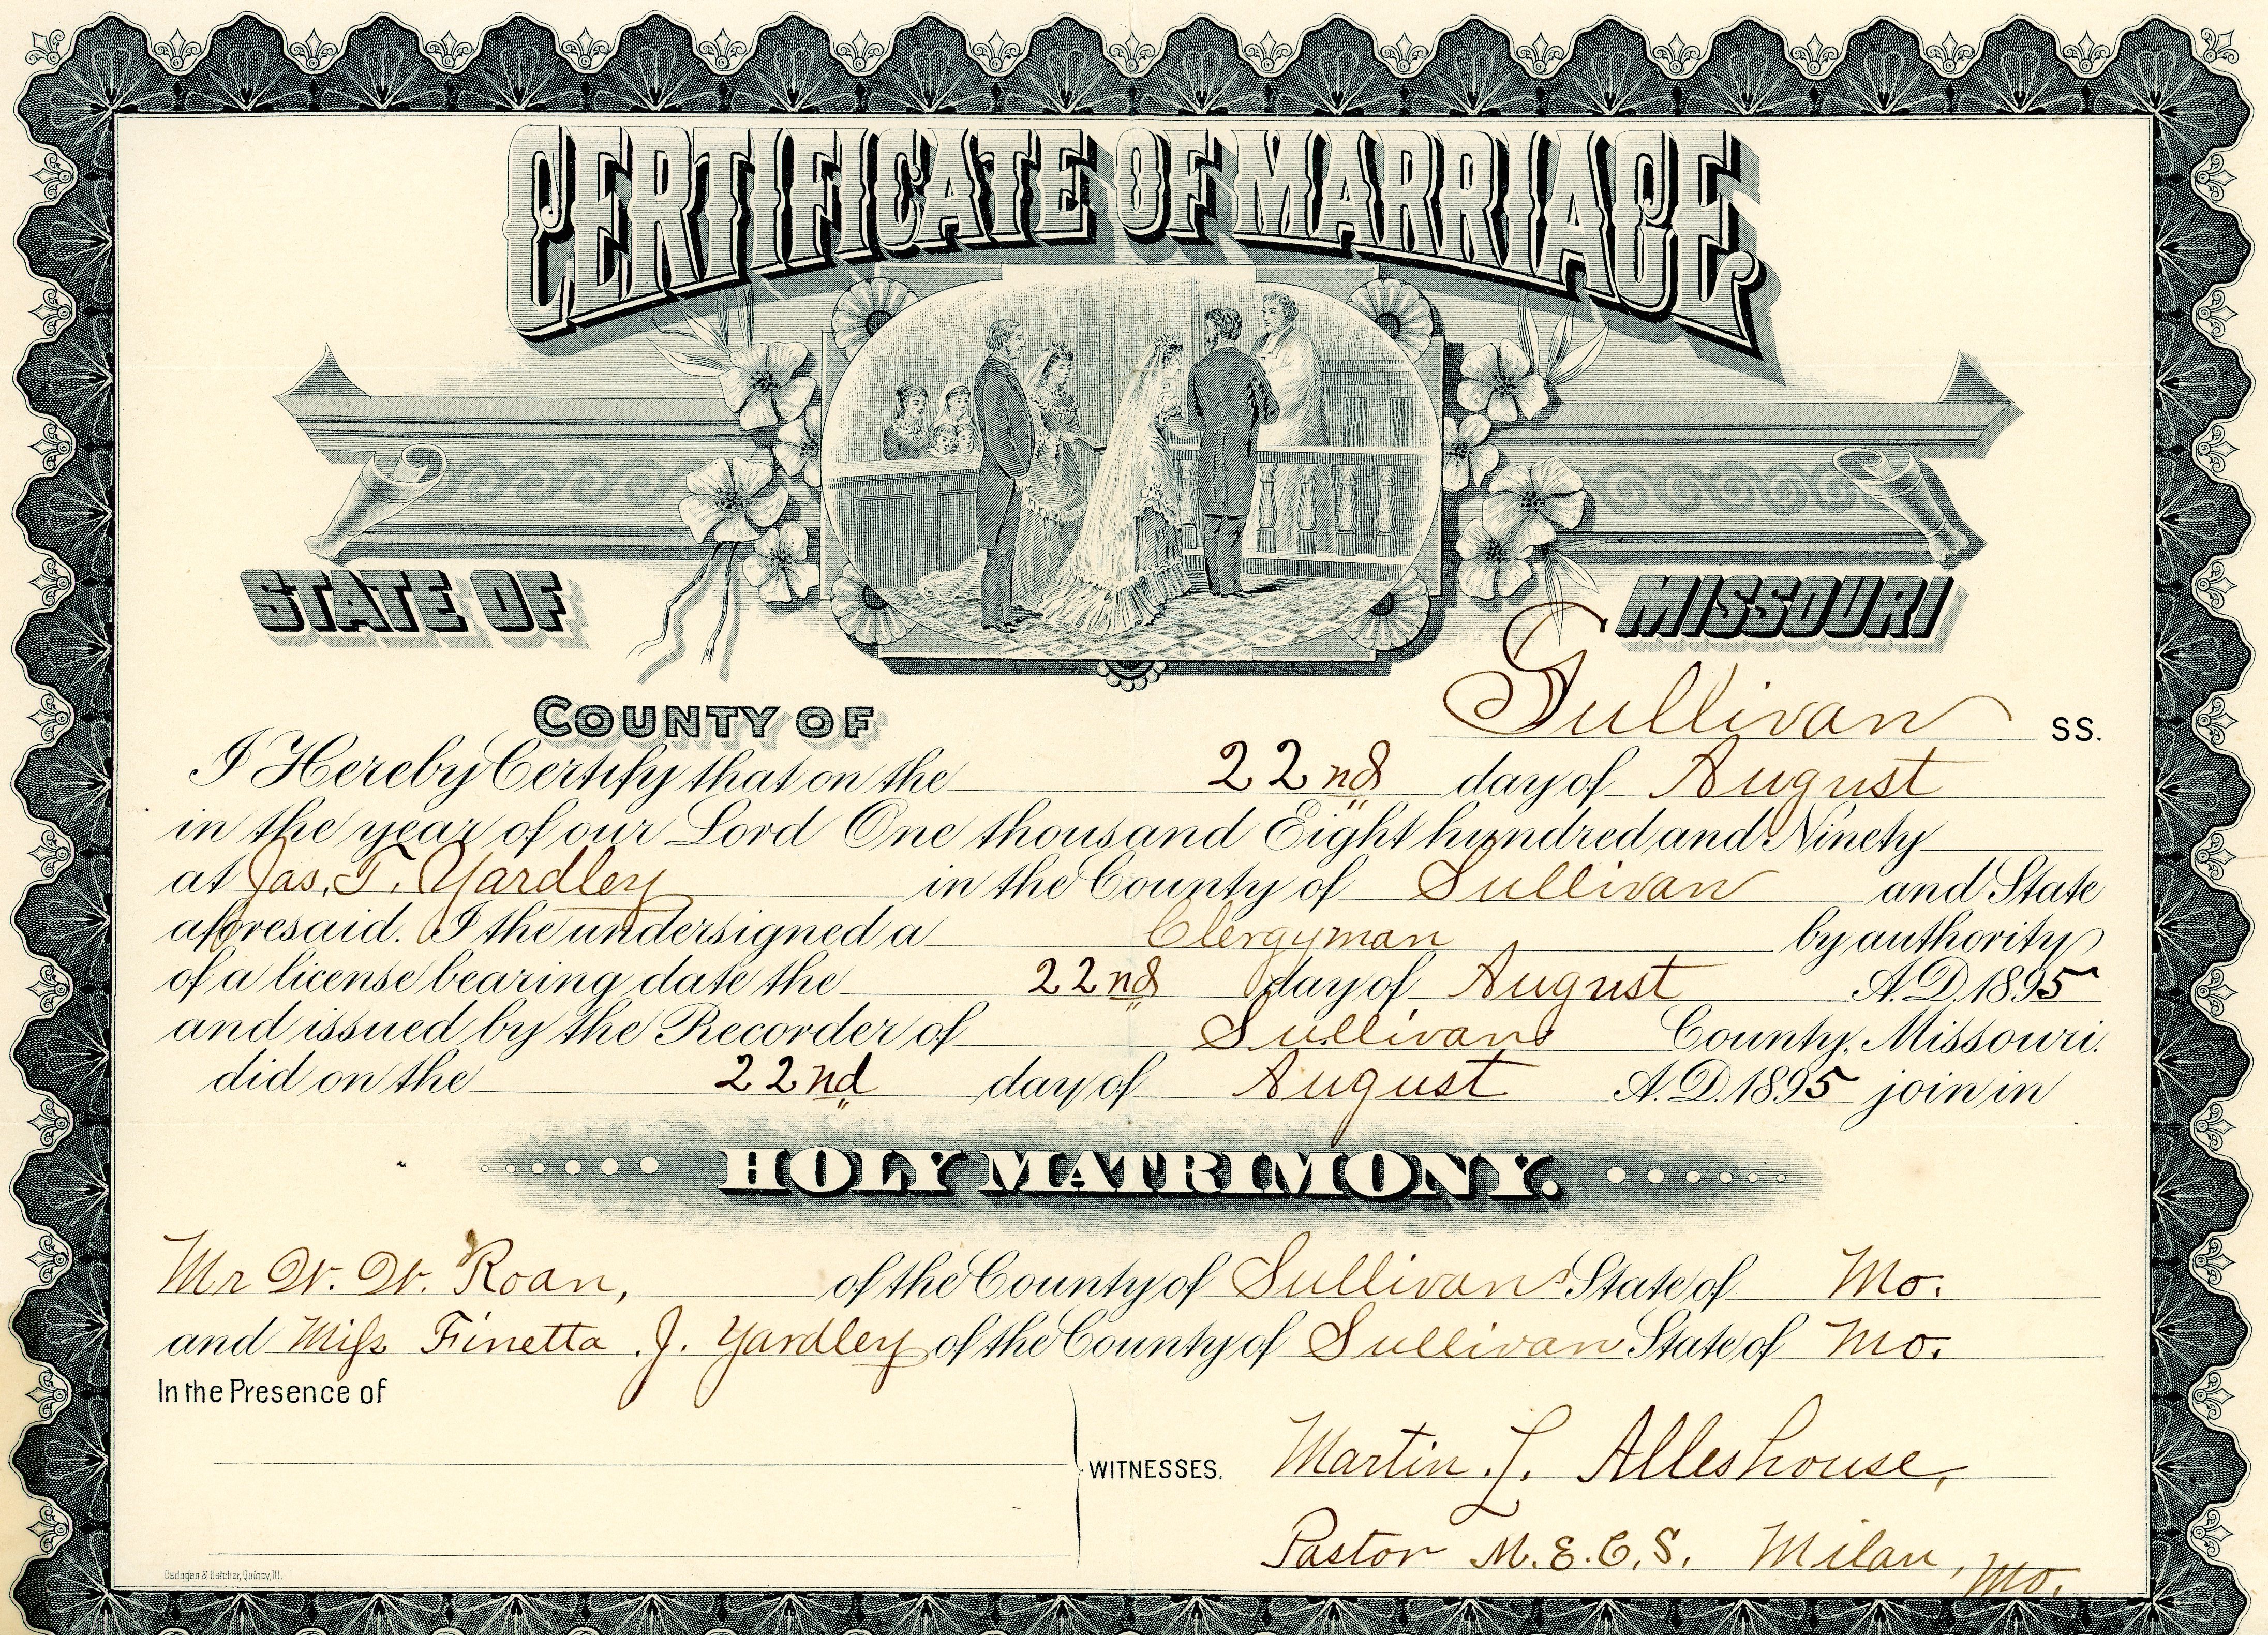 CERTIFICATE OF MARRIAGE
STATE OF MISSOURI
COUNTY OF Sullivan SS.
I Hereby Certify that on the 22nd day of August
in the year of our Lord One thousand Eight hundred and Ninety
at Jas. T. Yardley in the County of Sullivan and State
aforesaid. I the undersigned a Clergyman by authority
of a license bearing date the 22nd day of August A.D. 1895
and issued by the Recorder of Sullivan County, Missouri.
did on the 22nd day of August A.D. 1895 join in
HOLY MATRIMONY.
Mr W. W. Roan, of the County of Sullivan State of Mo.
and Miss Finetta J. Yardley of the County of Sullivan State of Mo.
In the Presence of
WITNESSES. Martin L. Alleshouse,
Pastor M.E.C.S. Milan, Mo.
Cadogan & Hatcher, Quincy, Ill.